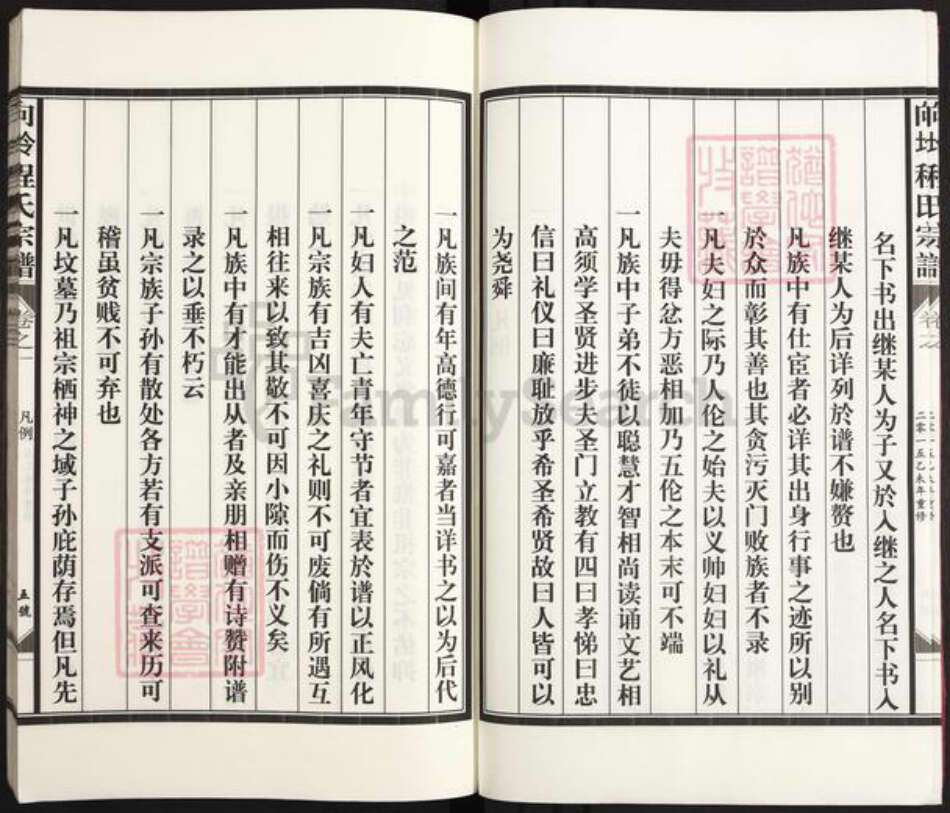 名下书出继某人为子又於入继之人名下书入
继某人为后详列於谱不嫌赘也
一凡族中有仕宦者必详其出身行事之迹所以别
於众而彰其善也其贪污灭门败族者不录
一凡夫妇之际乃人伦之始夫以义帅妇妇以礼从
夫毋得忿方恶相加乃五伦之本末可不端
一凡族中子弟不徒以聪慧才智相尚读诵文艺相
高须学圣贤进步夫圣门立教有四曰孝悌曰忠
信曰礼仪曰廉耻放乎希圣希贤故曰人皆可以
为尧舜
一凡族间有年高德行可嘉者当详书之以为后代
之范
一凡妇人有夫亡青年守节者宜表於谱以正风化
一凡宗族有吉凶喜庆之礼则不可废倘有所遇互
相往来以致其敬不可因小隙而伤不义矣
一凡族中有才能出从者及亲朋相赠有诗赞附谱
录之以垂不朽云
一凡宗族子孙有散处各方若有支派可查来历可
稽虽贫贱不可弃也
一凡坟墓乃祖宗栖神之域子孙庇荫存焉但凡先
程氏宗谱
卷之一
凡例
二零一五乙未年重修
五號
FamilySearch